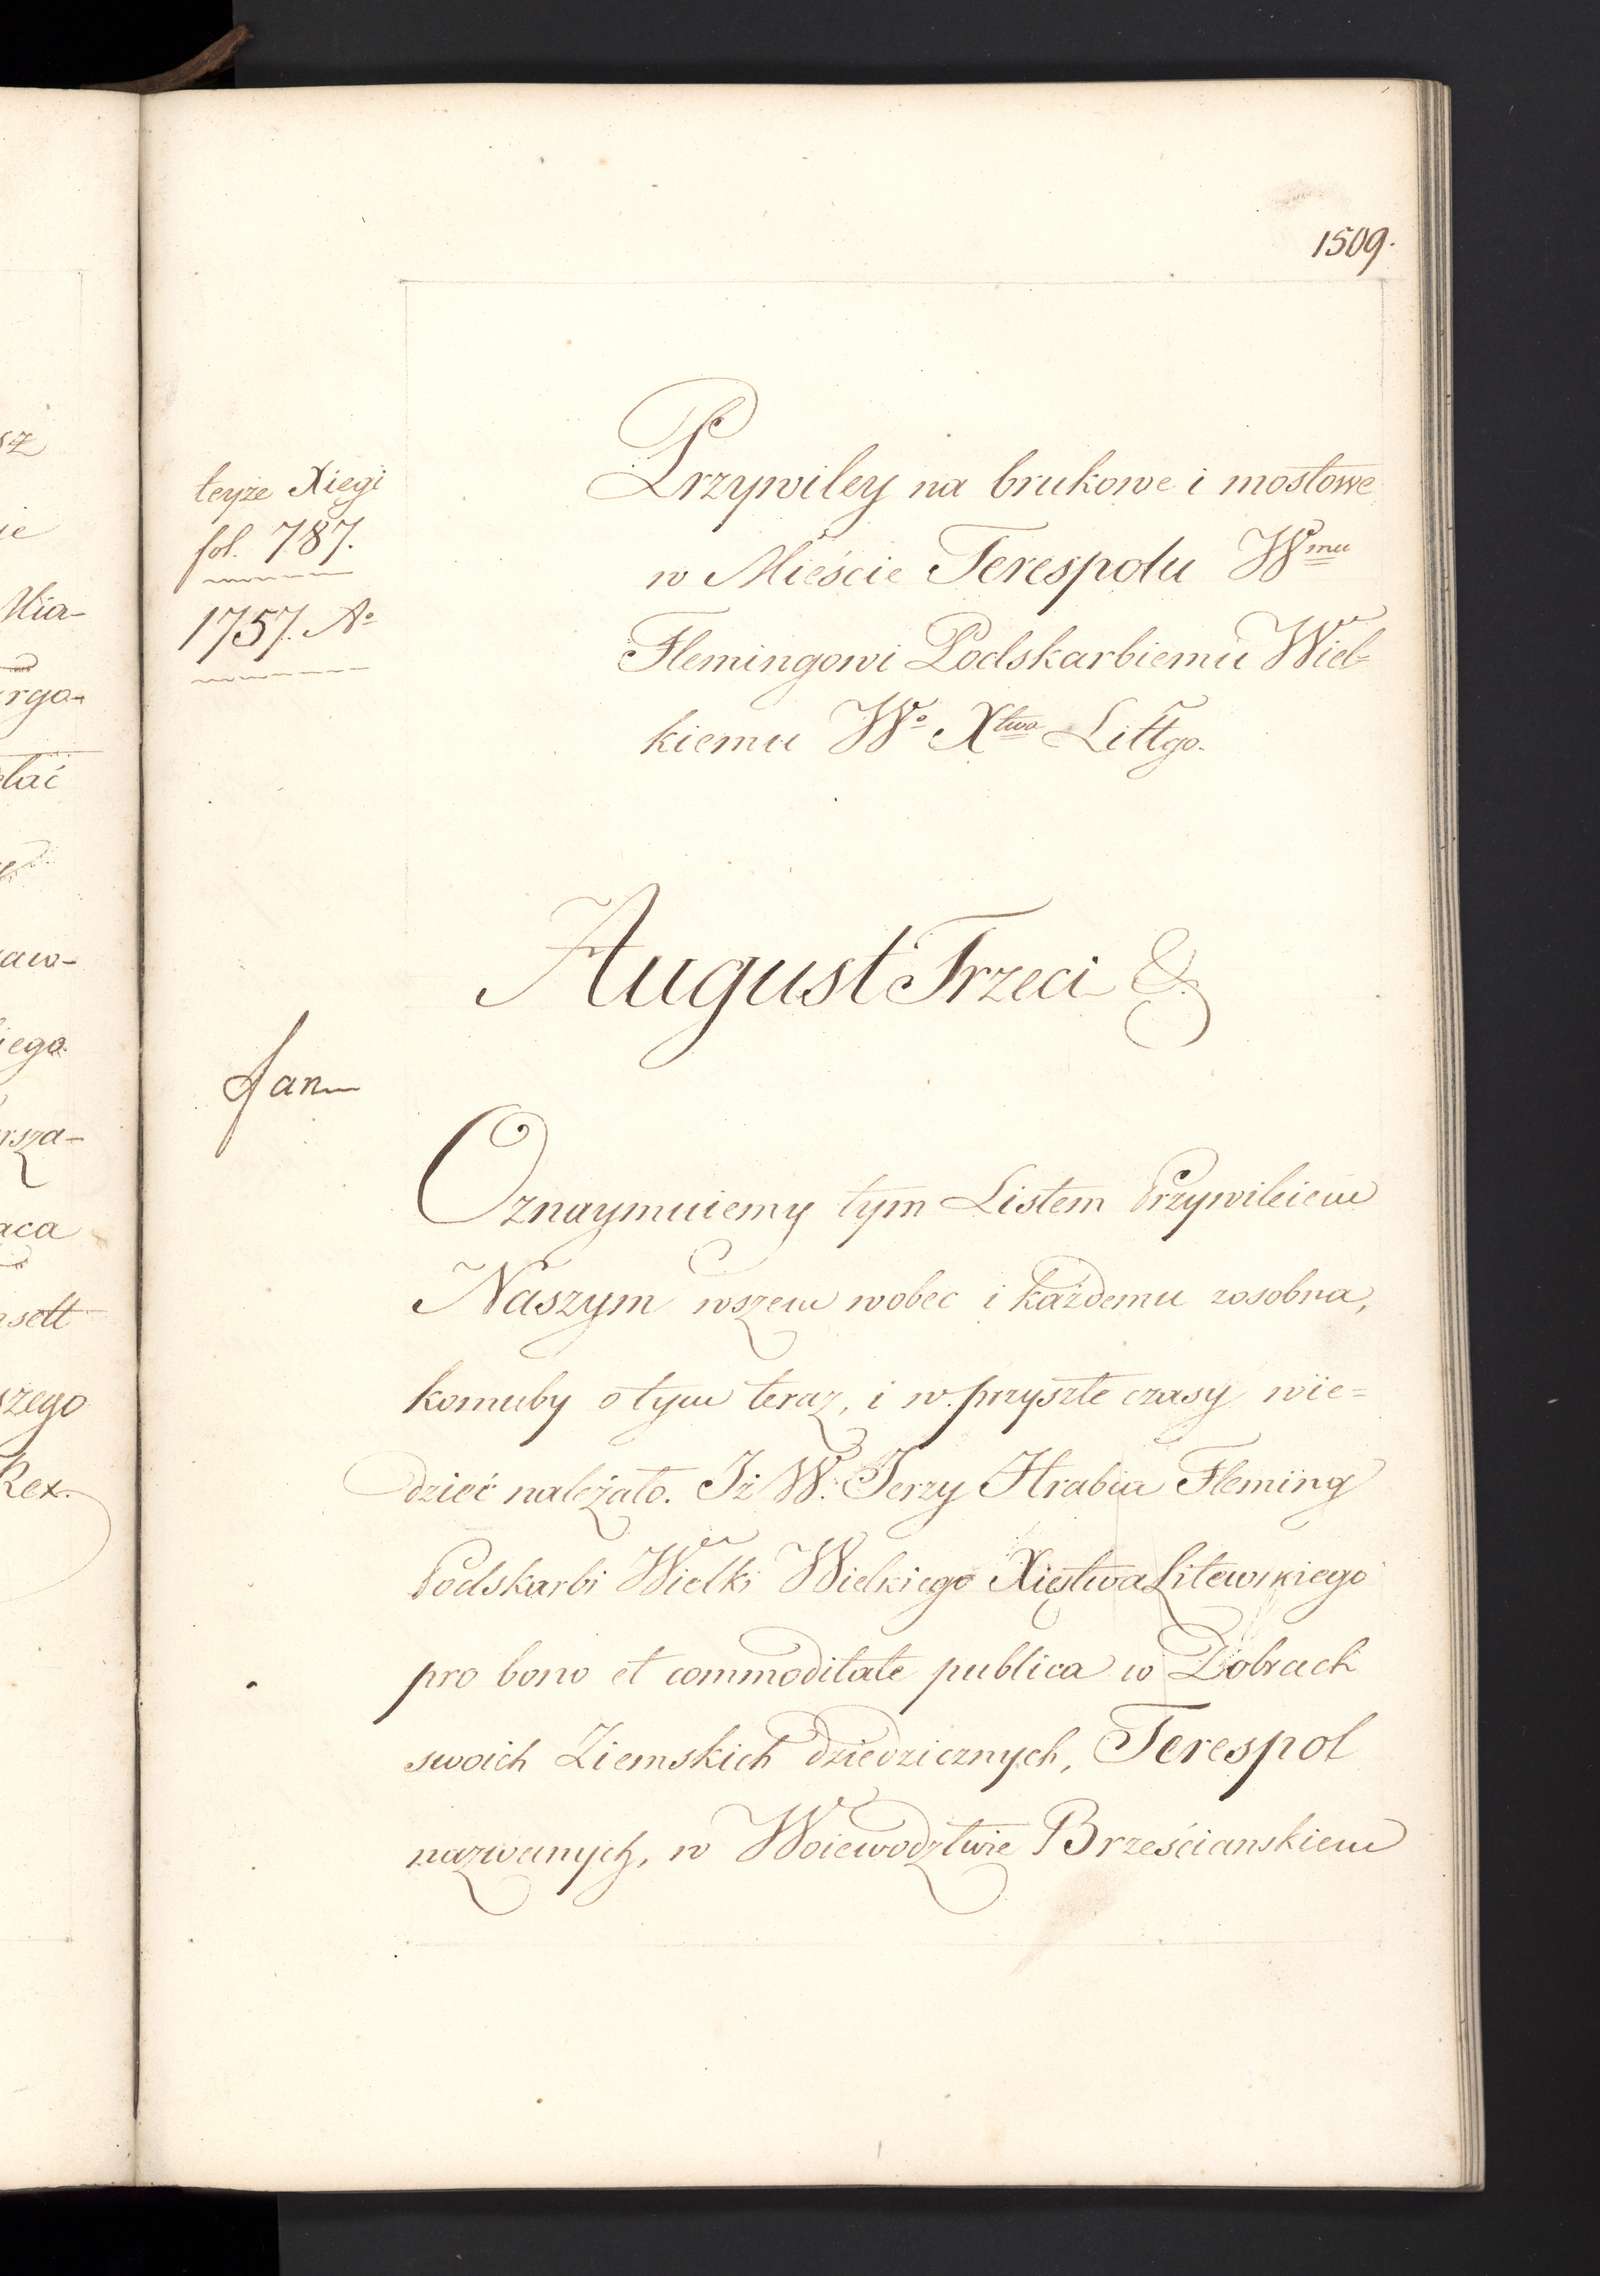 1509.
teyże Xięgi
fol. 787.
1757. Aº
Przywiley na brukowe i mostowe
w Mieście Terespolu Wmu
Flemingowi Podskarbiemu Wiel=
kiemu Wº Xtwa Littgo.
August Trzeci &
Oznaymuiemy tym Listem Przywileiem
Naszym wszem wobec i każdemu zosobna,
komuby o tym teraz, i w przyszłe czasy wie=
dzieć należało. Iż W. Jerzy Hrabia Fleming
Podskarbi Wielki Wielkiego Xięstwa Litewskiego
pro bono et commoditate publica w Dobrach
swoich Ziemskich dziedzicznych, Terespol
nazwanych, w Woiewodztwie Brześcianskiem
sz
ie
Mia-
rgo-
elać
aw-
iego
rsza-
aca
sett
szego
Rex.